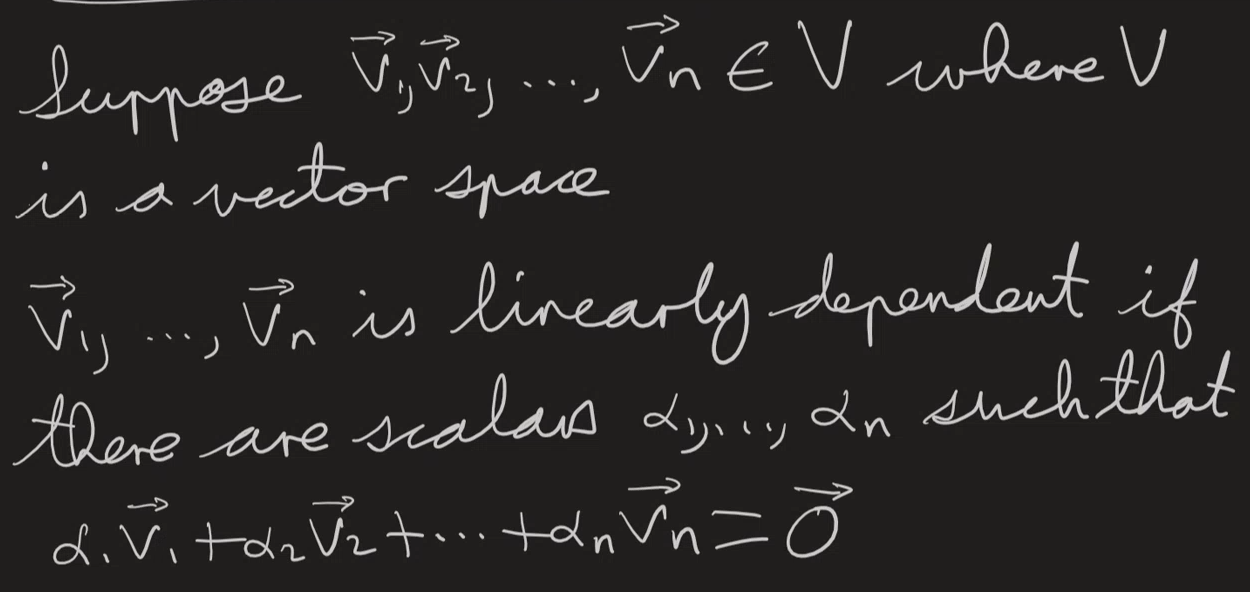 Suppose v⃗₁, v⃗₂, ..., v⃗ₙ ∈ V where V
is a vector space
v⃗₁, ..., v⃗ₙ is linearly dependent if
there are scalars α₁, ..., αₙ such that
α₁v⃗₁ + α₂v⃗₂ + ... + αₙv⃗ₙ = 0⃗